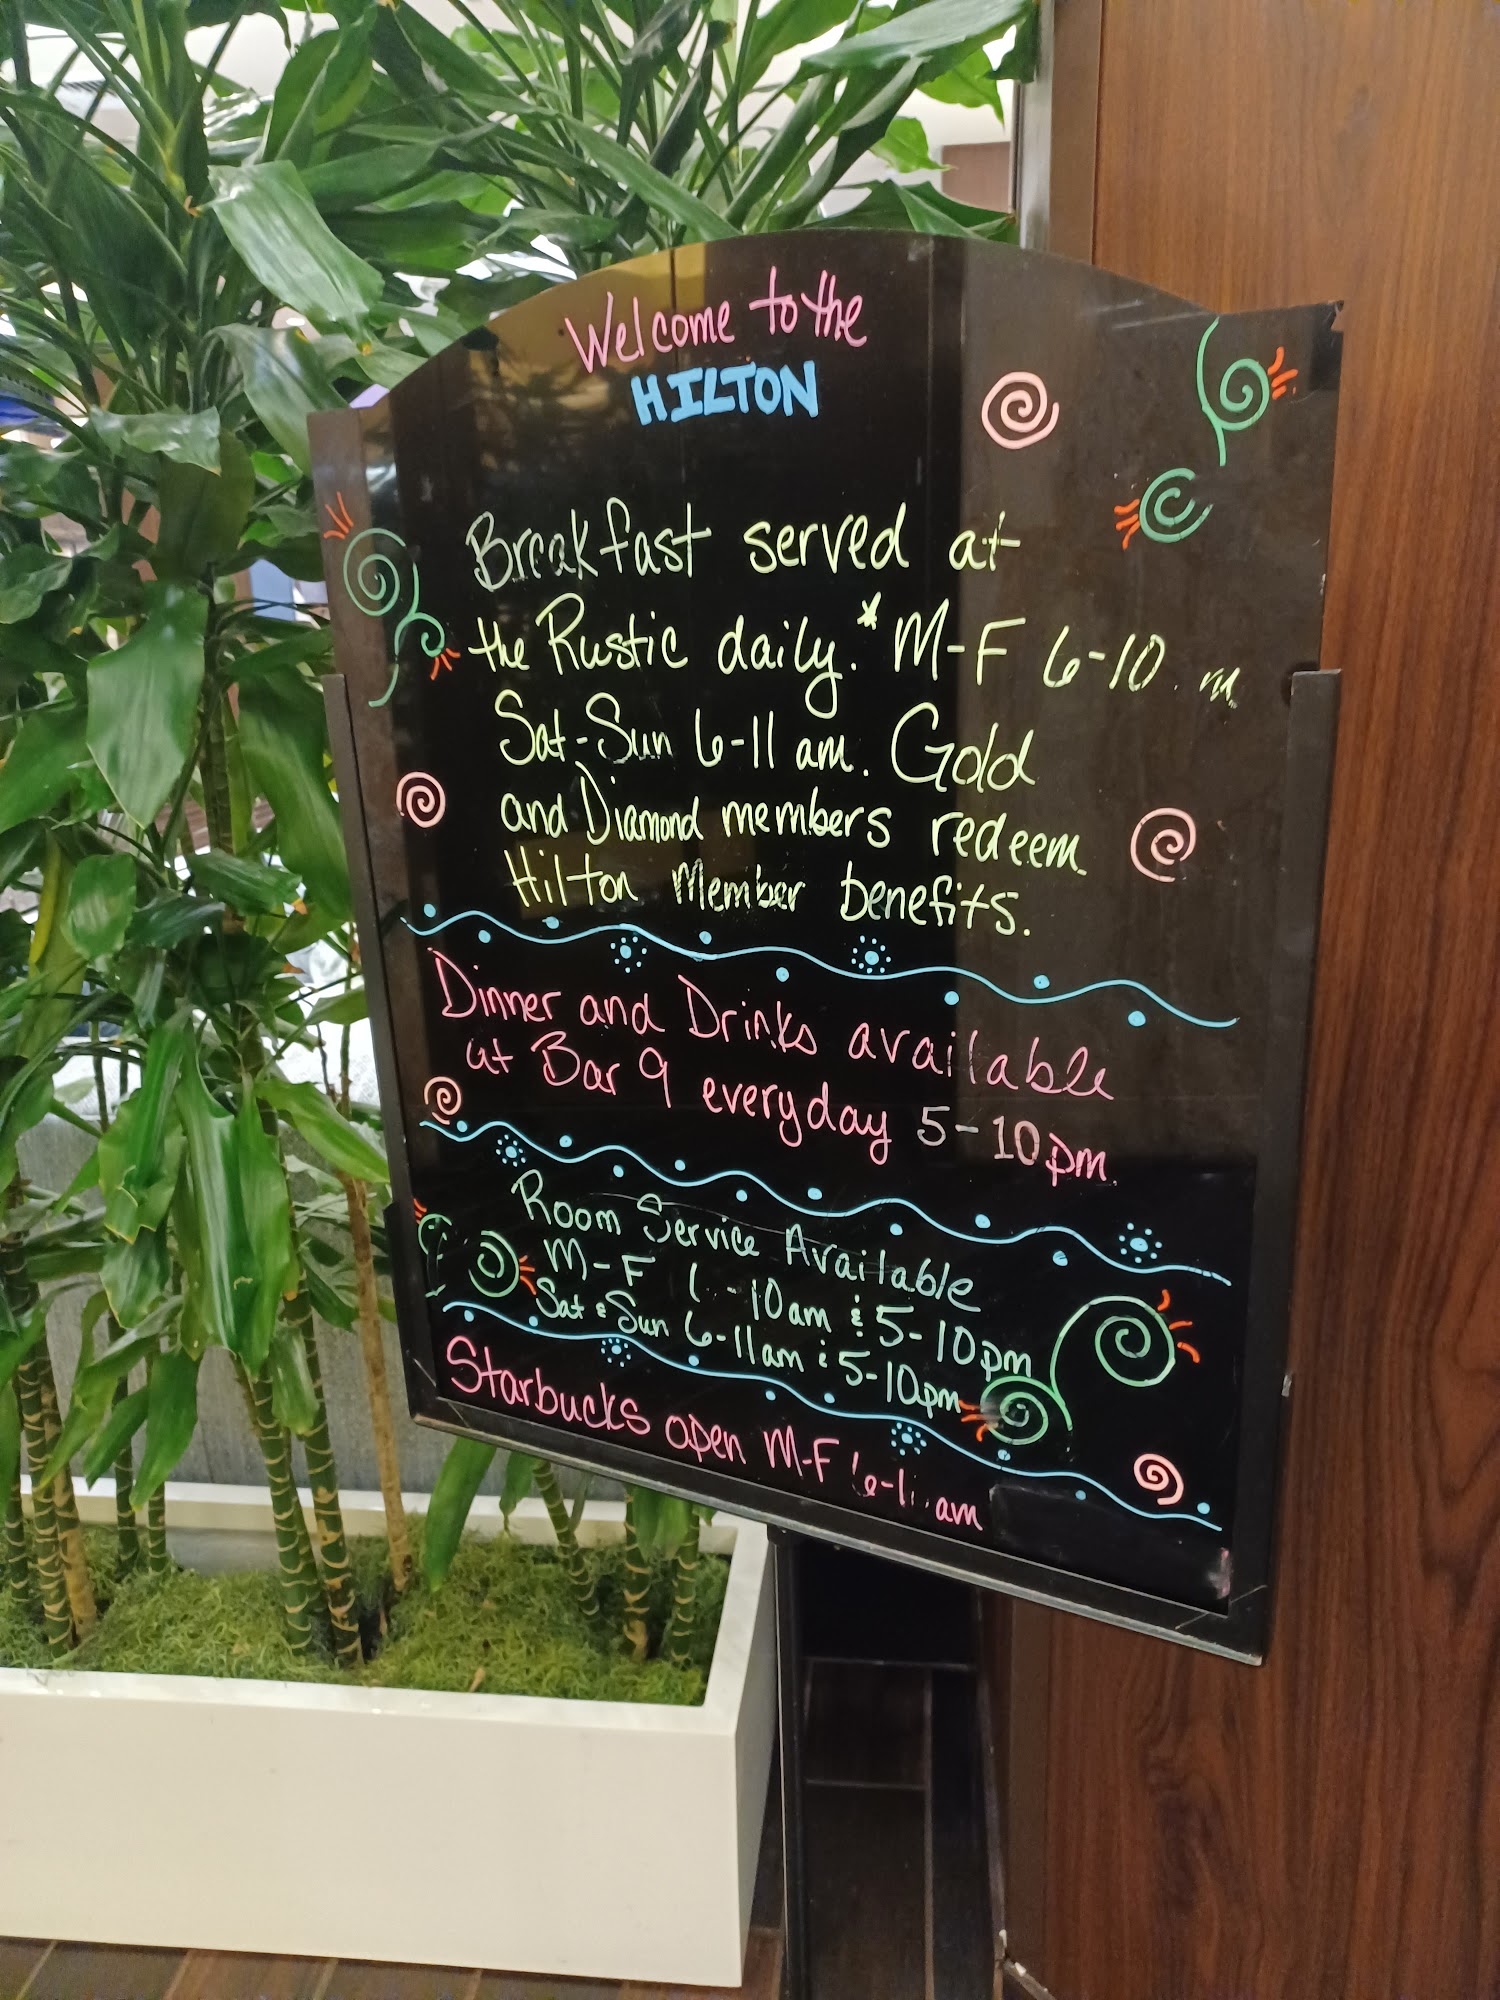 Welcome to the
HILTON
Breakfast served at
the Rustic daily.* M-F 6-10
Sat-Sun 6-11 am. Gold
and Diamond members redeem
Hilton Member benefits.
Dinner and Drinks available
at Bar 9 everyday 5-10pm
Room Service Available
M-F -10am & 5-10pm
Sat & Sun 6-11am & 5-10pm
Starbucks open M-F am